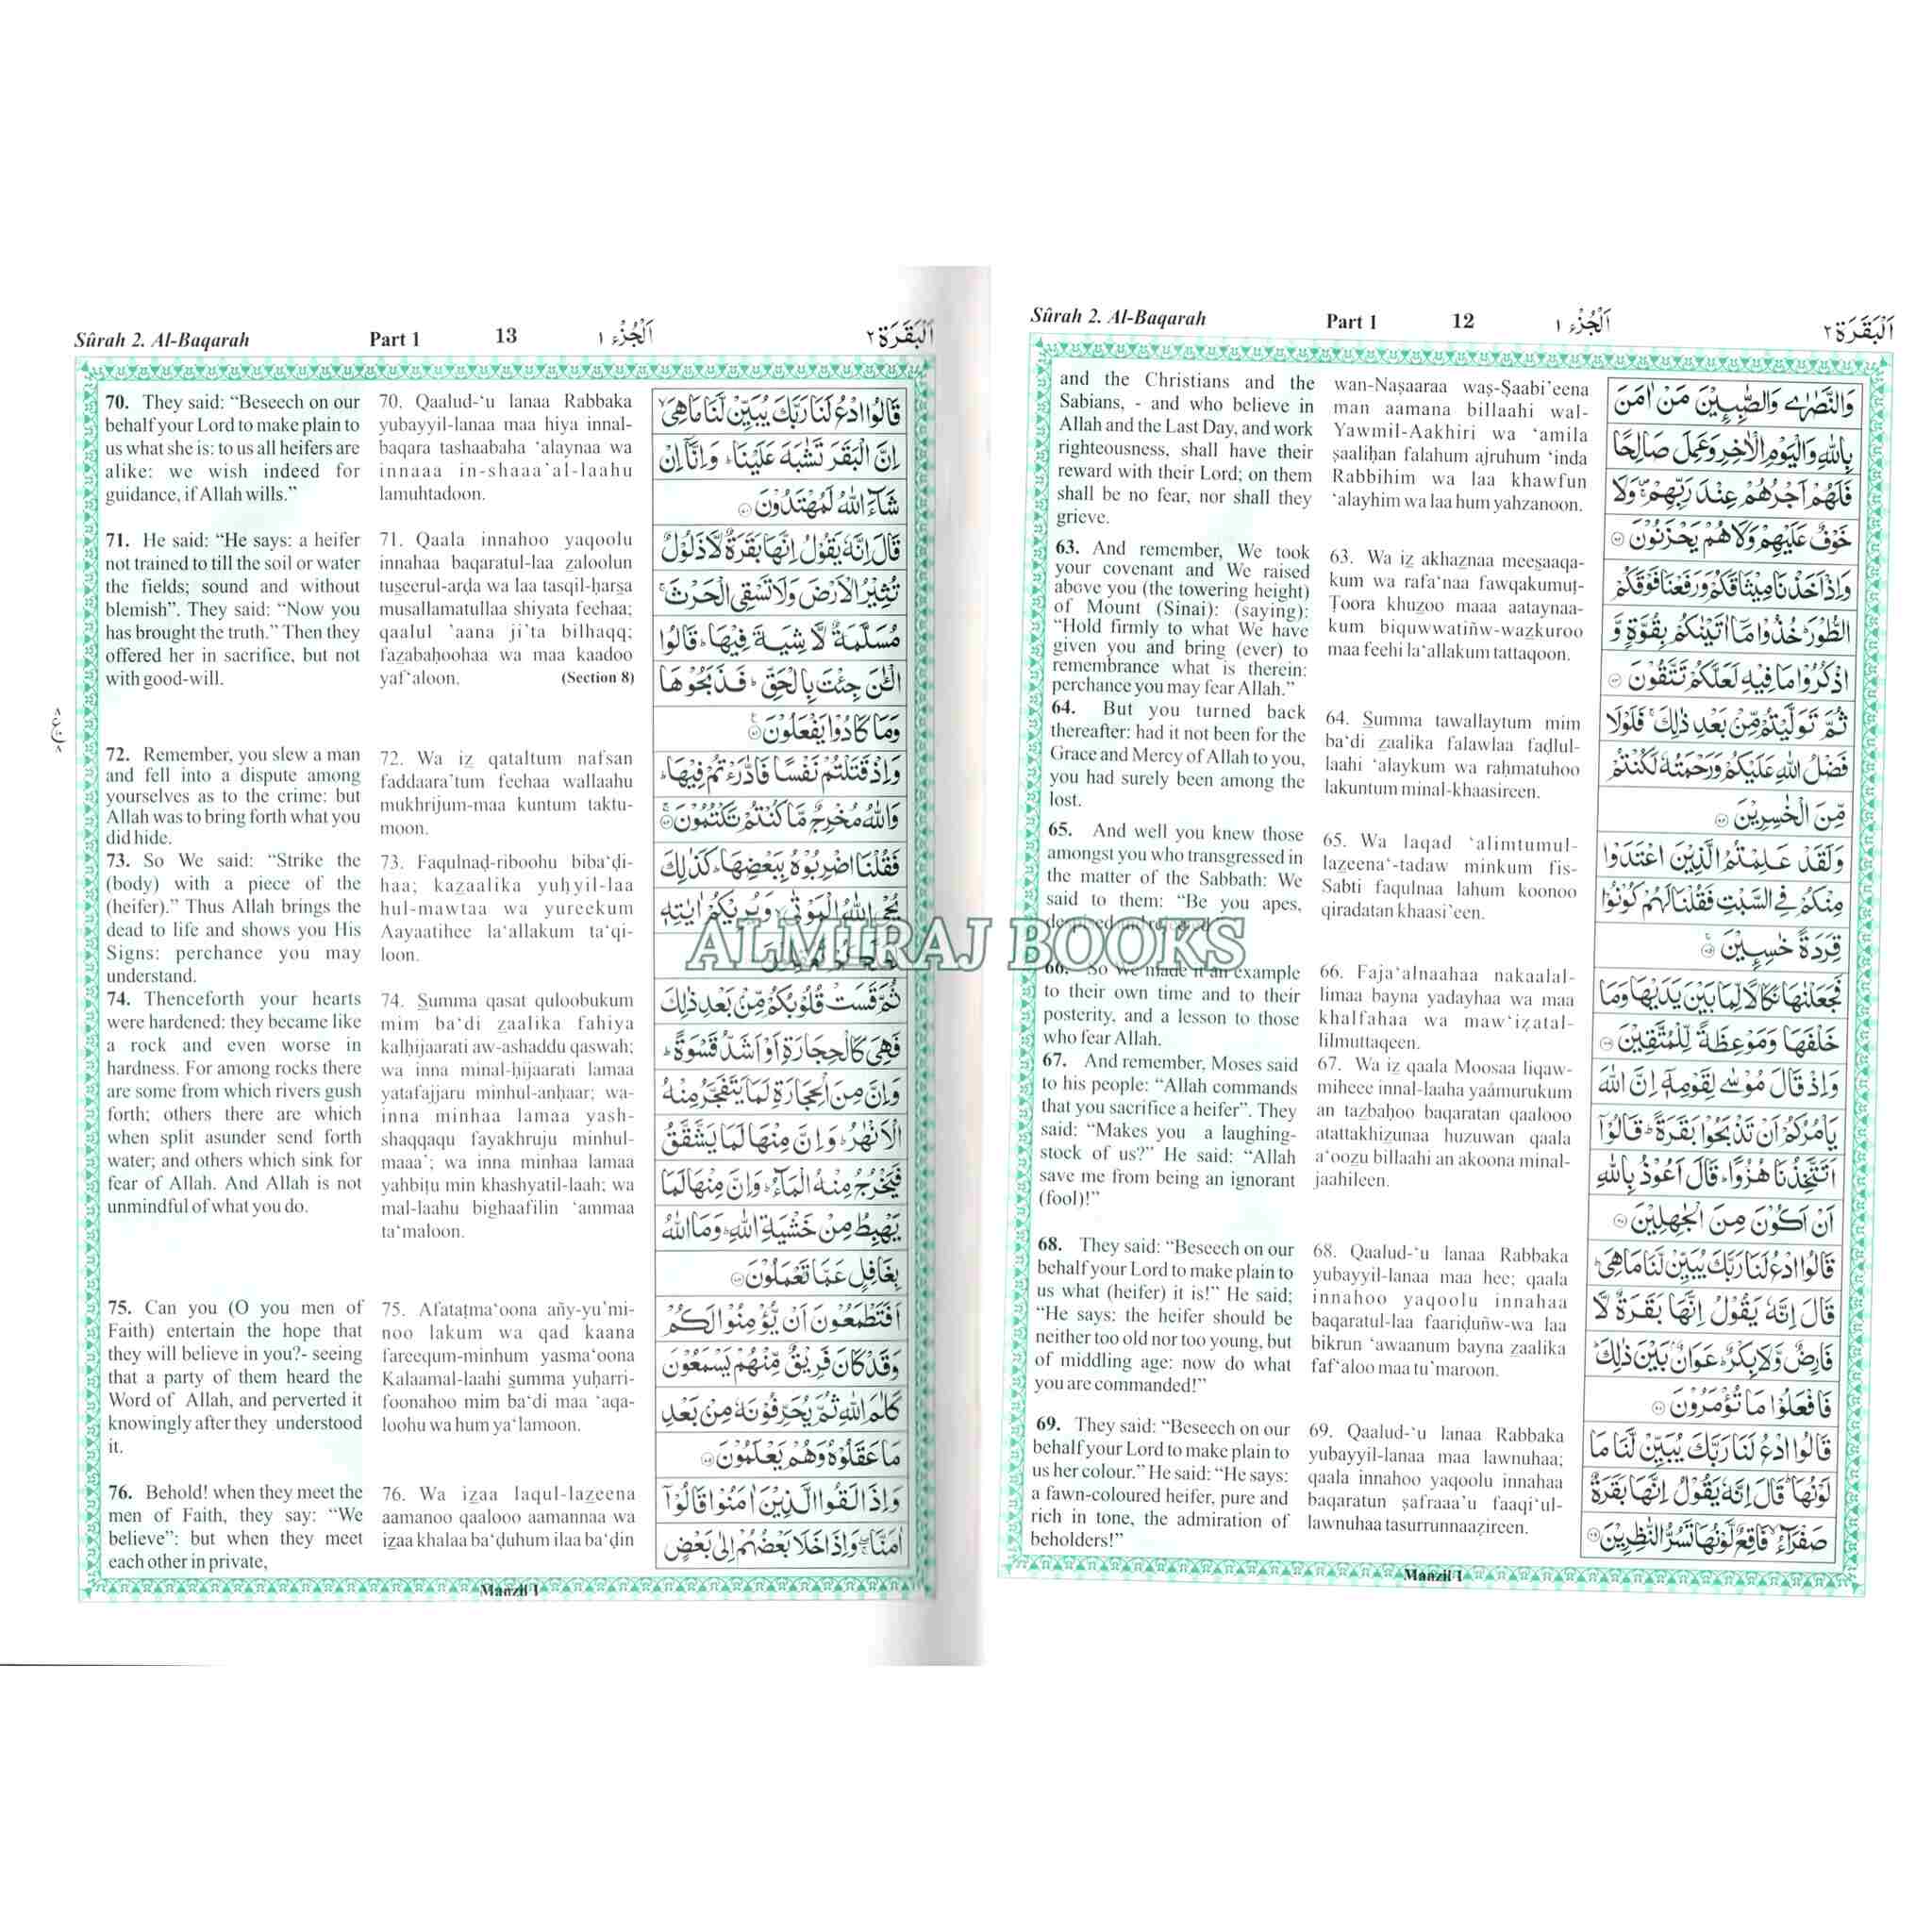 Sûrah 2. Al-Baqarah Part 1 12 اَلْجُزْء ١ اَلْبَقَرَة ٢
and the Christians and the
Sabians, - and who believe in
Allah and the Last Day, and work
righteousness, shall have their
reward with their Lord; on them
shall be no fear, nor shall they
grieve.
63. And remember, We took
your covenant and We raised
above you (the towering height)
of Mount (Sinai): (saying):
“Hold firmly to what We have
given you and bring (ever) to
remembrance what is therein:
perchance you may fear Allah.”
64. But you turned back
thereafter: had it not been for the
Grace and Mercy of Allah to you,
you had surely been among the
lost.
65. And well you knew those
amongst you who transgressed in
the matter of the Sabbath: We
said to them: “Be you apes,
despised and rejected.”
66. So We made it an example
to their own time and to their
posterity, and a lesson to those
who fear Allah.
67. And remember, Moses said
to his people: “Allah commands
that you sacrifice a heifer”. They
said: “Makes you a laughing-
stock of us?” He said: “Allah
save me from being an ignorant
(fool)!”
68. They said: “Beseech on our
behalf your Lord to make plain to
us what (heifer) it is!” He said;
“He says: the heifer should be
neither too old nor too young, but
of middling age: now do what
you are commanded!”
69. They said: “Beseech on our
behalf your Lord to make plain to
us her colour.” He said: “He says:
a fawn-coloured heifer, pure and
rich in tone, the admiration of
beholders!”
wan-Naṣaaraa waṣ-Ṣaabi’eena
man aamana billaahi wal-
Yawmil-Aakhiri wa ‘amila
ṣaaliḥan falahum ajruhum ‘inda
Rabbihim wa laa khawfun
‘alayhim wa laa hum yahzanoon.
63. Wa iz akhaznaa meesaaqa-
kum wa rafa‘naa fawqakumuṭ-
Ṭoora khuzoo maaa aataynaa-
kum biquwwatiñw-wazkuroo
maa feehi la‘allakum tattaqoon.
64. Summa tawallaytum mim
ba‘di zaalika falawlaa faḍlul-
laahi ‘alaykum wa raḥmatuhoo
lakuntum minal-khaasireen.
65. Wa laqad ‘alimtumul-
lazeena‘-tadaw minkum fis-
Sabti faqulnaa lahum koonoo
qiradatan khaasi’een.
66. Faja‘alnaahaa nakaalal-
limaa bayna yadayhaa wa maa
khalfahaa wa maw‘iẓatal-
lilmuttaqeen.
67. Wa iz qaala Moosaa liqaw-
miheee innal-laaha yaámurukum
an tazbaḥoo baqaratan qaalooo
atattakhizunaa huzuwan qaala
a‘oozu billaahi an akoona minal-
jaahileen.
68. Qaalud-‘u lanaa Rabbaka
yubayyil-lanaa maa hee; qaala
innahoo yaqoolu innahaa
baqaratul-laa faariḍuñw-wa laa
bikrun ‘awaanum bayna zaalika
faf‘aloo maa tu’maroon.
69. Qaalud-‘u lanaa Rabbaka
yubayyil-lanaa maa lawnuhaa;
qaala innahoo yaqoolu innahaa
baqaratun ṣafraaa’u faaqi‘ul-
lawnuhaa tasurrunnaaẓireen.
وَالنَّصٰرٰى وَالصّٰبِـِٕيْنَ مَنْ اٰمَنَ
بِاللّٰهِ وَالْيَوْمِ الْاٰخِرِ وَعَمِلَ صَالِحًا
فَلَهُمْ اَجْرُهُمْ عِنْدَ رَبِّهِمْ ۚ وَلَا
خَوْفٌ عَلَيْهِمْ وَلَا هُمْ يَحْزَنُوْنَ ۝٦٢
وَاِذْ اَخَذْنَا مِيْثَاقَكُمْ وَرَفَعْنَا فَوْقَكُمُ
الطُّوْرَ ؕ خُذُوْا مَاۤ اٰتَيْنٰكُمْ بِقُوَّةٍ وَّ
اذْكُرُوْا مَا فِيْهِ لَعَلَّكُمْ تَتَّقُوْنَ ۝٦٣
ثُمَّ تَوَلَّيْتُمْ مِّنْۢ بَعْدِ ذٰلِكَ ۚ فَلَوْلَا
فَضْلُ اللّٰهِ عَلَيْكُمْ وَرَحْمَتُهٗ لَكُنْتُمْ
مِّنَ الْخٰسِرِيْنَ ۝٦٤
وَلَقَدْ عَلِمْتُمُ الَّذِيْنَ اعْتَدَوْا
مِنْكُمْ فِي السَّبْتِ فَقُلْنَا لَهُمْ كُوْنُوْا
قِرَدَةً خٰسِـِٕيْنَ ۝٦٥
فَجَعَلْنٰهَا نَكَالًا لِّمَا بَيْنَ يَدَيْهَا وَمَا
خَلْفَهَا وَمَوْعِظَةً لِّلْمُتَّقِيْنَ ۝٦٦
وَاِذْ قَالَ مُوْسٰى لِقَوْمِهٖۤ اِنَّ اللّٰهَ
يَاْمُرُكُمْ اَنْ تَذْبَحُوْا بَقَرَةً ؕ قَالُوْۤا
اَتَتَّخِذُنَا هُزُوًا ؕ قَالَ اَعُوْذُ بِاللّٰهِ
اَنْ اَكُوْنَ مِنَ الْجٰهِلِيْنَ ۝٦٧
قَالُوا ادْعُ لَنَا رَبَّكَ يُبَيِّنْ لَّنَا مَا هِيَ ؕ
قَالَ اِنَّهٗ يَقُوْلُ اِنَّهَا بَقَرَةٌ لَّا
فَارِضٌ وَّلَا بِكْرٌ ؕ عَوَانٌۢ بَيْنَ ذٰلِكَ ؕ
فَافْعَلُوْا مَا تُؤْمَرُوْنَ ۝٦٨
قَالُوا ادْعُ لَنَا رَبَّكَ يُبَيِّنْ لَّنَا مَا
لَوْنُهَا ؕ قَالَ اِنَّهٗ يَقُوْلُ اِنَّهَا بَقَرَةٌ
صَفْرَآءُ ۙ فَاقِعٌ لَّوْنُهَا تَسُرُّ النّٰظِرِيْنَ ۝٦٩
Manzil 1
Sûrah 2. Al-Baqarah Part 1 13 اَلْجُزْء ١ اَلْبَقَرَة ٢
70. They said: “Beseech on our
behalf your Lord to make plain to
us what she is: to us all heifers are
alike: we wish indeed for
guidance, if Allah wills.”
71. He said: “He says: a heifer
not trained to till the soil or water
the fields; sound and without
blemish”. They said: “Now you
has brought the truth.” Then they
offered her in sacrifice, but not
with good-will.
72. Remember, you slew a man
and fell into a dispute among
yourselves as to the crime: but
Allah was to bring forth what you
did hide.
73. So We said: “Strike the
(body) with a piece of the
(heifer).” Thus Allah brings the
dead to life and shows you His
Signs: perchance you may
understand.
74. Thenceforth your hearts
were hardened: they became like
a rock and even worse in
hardness. For among rocks there
are some from which rivers gush
forth; others there are which
when split asunder send forth
water; and others which sink for
fear of Allah. And Allah is not
unmindful of what you do.
75. Can you (O you men of
Faith) entertain the hope that
they will believe in you?- seeing
that a party of them heard the
Word of Allah, and perverted it
knowingly after they understood
it.
76. Behold! when they meet the
men of Faith, they say: “We
believe”: but when they meet
each other in private,
70. Qaalud-‘u lanaa Rabbaka
yubayyil-lanaa maa hiya innal-
baqara tashaabaha ‘alaynaa wa
innaaa in-shaaa’al-laahu
lamuhtadoon.
71. Qaala innahoo yaqoolu
innahaa baqaratul-laa zaloolun
tuseerul-arḍa wa laa tasqil-ḥarsa
musallamatullaa shiyata feehaa;
qaalul ’aana ji’ta bilhaqq;
fazabaḥoohaa wa maa kaadoo
yaf‘aloon. (Section 8)
72. Wa iz qataltum nafsan
faddaara’tum feehaa wallaahu
mukhrijum-maa kuntum taktu-
moon.
73. Faqulnaḍ-riboohu biba‘ḍi-
haa; kazaalika yuḥyil-laa
hul-mawtaa wa yureekum
Aayaatihee la‘allakum ta‘qi-
loon.
74. Summa qasat quloobukum
mim ba‘di zaalika fahiya
kalḥijaarati aw-ashaddu qaswah;
wa inna minal-ḥijaarati lamaa
yatafajjaru minhul-anhaar; wa-
inna minhaa lamaa yash-
shaqqaqu fayakhruju minhul-
maaa’; wa inna minhaa lamaa
yahbiṭu min khashyatil-laah; wa
mal-laahu bighaafilin ‘ammaa
ta‘maloon.
75. Afataṭma‘oona añy-yu’mi-
noo lakum wa qad kaana
fareequm-minhum yasma‘oona
Kalaamal-laahi summa yuḥarri-
foonahoo mim ba‘di maa ‘aqa-
loohu wa hum ya‘lamoon.
76. Wa izaa laqul-lazeena
aamanoo qaalooo aamannaa wa
izaa khalaa ba‘ḍuhum ilaa ba‘ḍin
قَالُوا ادْعُ لَنَا رَبَّكَ يُبَيِّنْ لَّنَا مَا هِيَ ۙ
اِنَّ الْبَقَرَ تَشٰبَهَ عَلَيْنَا ؕ وَاِنَّاۤ اِنْ
شَآءَ اللّٰهُ لَمُهْتَدُوْنَ ۝٧٠
قَالَ اِنَّهٗ يَقُوْلُ اِنَّهَا بَقَرَةٌ لَّا ذَلُوْلٌ
تُثِيْرُ الْاَرْضَ وَلَا تَسْقِي الْحَرْثَ ۚ
مُسَلَّمَةٌ لَّا شِيَةَ فِيْهَا ؕ قَالُوا
الْـٰٔنَ جِئْتَ بِالْحَقِّ ؕ فَذَبَحُوْهَا
وَمَا كَادُوْا يَفْعَلُوْنَ ۝٧١
وَاِذْ قَتَلْتُمْ نَفْسًا فَادّٰرَءْتُمْ فِيْهَا ؕ
وَاللّٰهُ مُخْرِجٌ مَّا كُنْتُمْ تَكْتُمُوْنَ ۝٧٢
فَقُلْنَا اضْرِبُوْهُ بِبَعْضِهَا ؕ كَذٰلِكَ
يُحْيِ اللّٰهُ الْمَوْتٰى ۙ وَيُرِيْكُمْ اٰيٰتِهٖ
لَعَلَّكُمْ تَعْقِلُوْنَ
ثُمَّ قَسَتْ قُلُوْبُكُمْ مِّنْۢ بَعْدِ ذٰلِكَ
فَهِيَ كَالْحِجَارَةِ اَوْ اَشَدُّ قَسْوَةً ؕ
وَاِنَّ مِنَ الْحِجَارَةِ لَمَا يَتَفَجَّرُ مِنْهُ
الْاَنْهٰرُ ؕ وَاِنَّ مِنْهَا لَمَا يَشَّقَّقُ
فَيَخْرُجُ مِنْهُ الْمَآءُ ؕ وَاِنَّ مِنْهَا لَمَا
يَهْبِطُ مِنْ خَشْيَةِ اللّٰهِ ؕ وَمَا اللّٰهُ
بِغَافِلٍ عَمَّا تَعْمَلُوْنَ ۝٧٤
اَفَتَطْمَعُوْنَ اَنْ يُّؤْمِنُوْا لَكُمْ
وَقَدْ كَانَ فَرِيْقٌ مِّنْهُمْ يَسْمَعُوْنَ
كَلٰمَ اللّٰهِ ثُمَّ يُحَرِّفُوْنَهٗ مِنْۢ بَعْدِ
مَا عَقَلُوْهُ وَهُمْ يَعْلَمُوْنَ ۝٧٥
وَاِذَا لَقُوا الَّذِيْنَ اٰمَنُوْا قَالُوْۤا
اٰمَنَّا ۖۚ وَاِذَا خَلَا بَعْضُهُمْ اِلٰى بَعْضٍ
Manzil 1
ALMIRAJ BOOKS